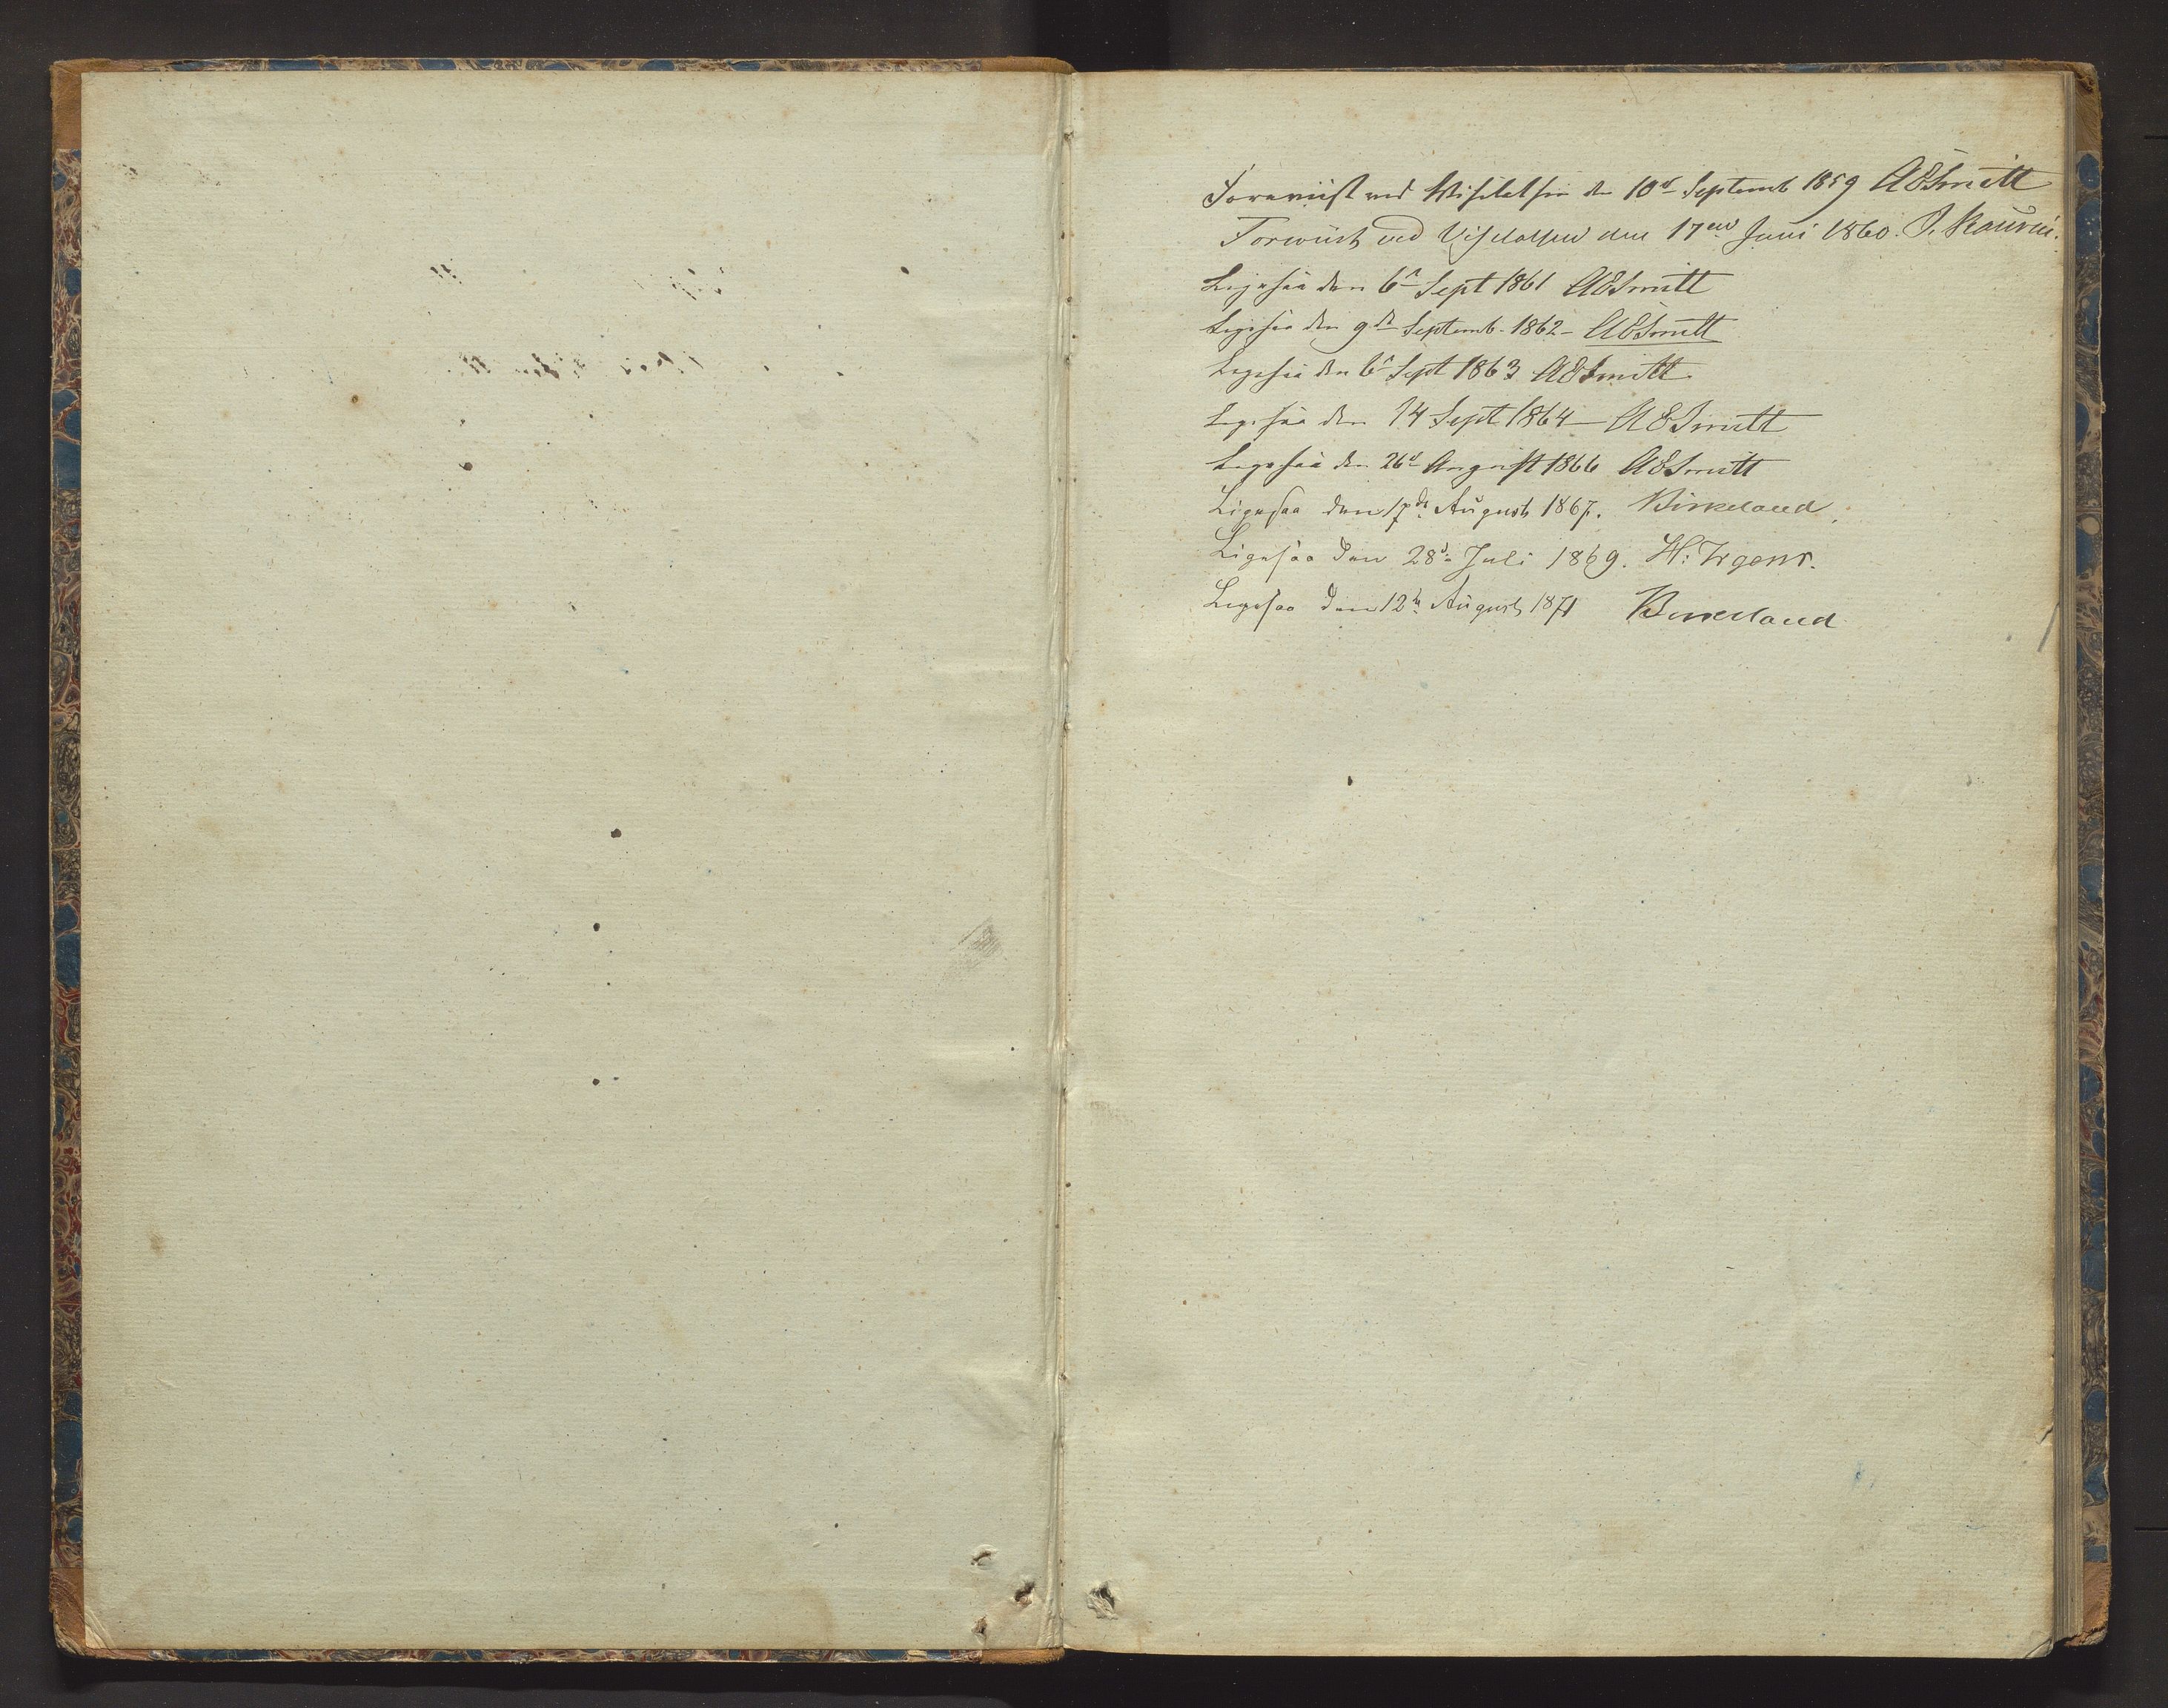 Foreviist ved Visitatsen den 10d Septemb 1859 AESmitt
Foreviist ved Visitatsen den 17en Juni 1860. J. Kaurin.
Ligesaa den 6te Sept 1861 AESmitt
Ligesaa den 9de Septemb. 1862 - AESmitt
Ligesaa den 6te Sept 1863 AESmitt
Ligesaa den 14 Sept 1864 - AESmitt
Ligesaa den 26d August 1866 AESmitt
Ligesaa den 17de August 1867. Birkeland
Ligesaa den 28d. Juli 1869. H: Irgens.
Ligesaa den 12te August 1871 Birkeland